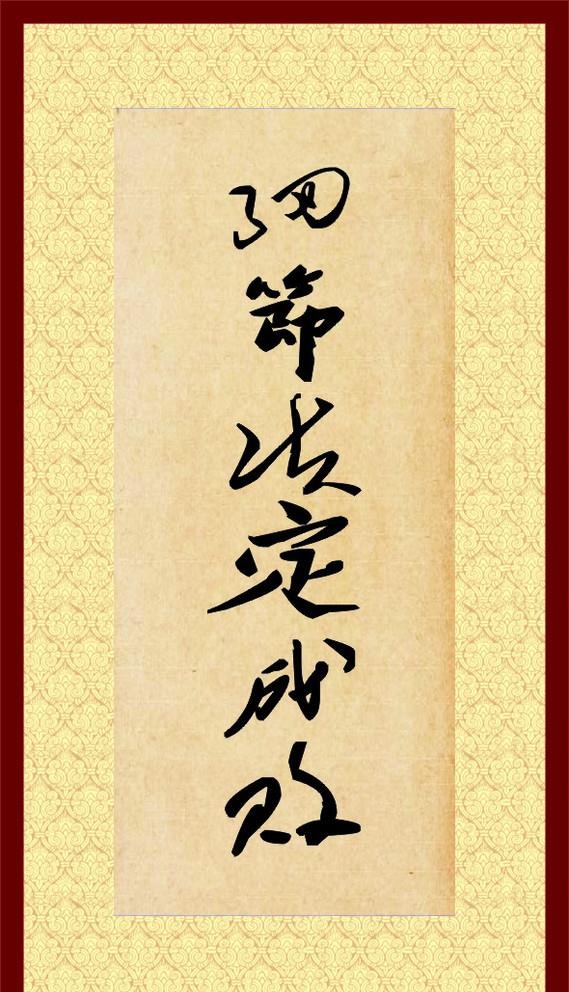 細節决定成败